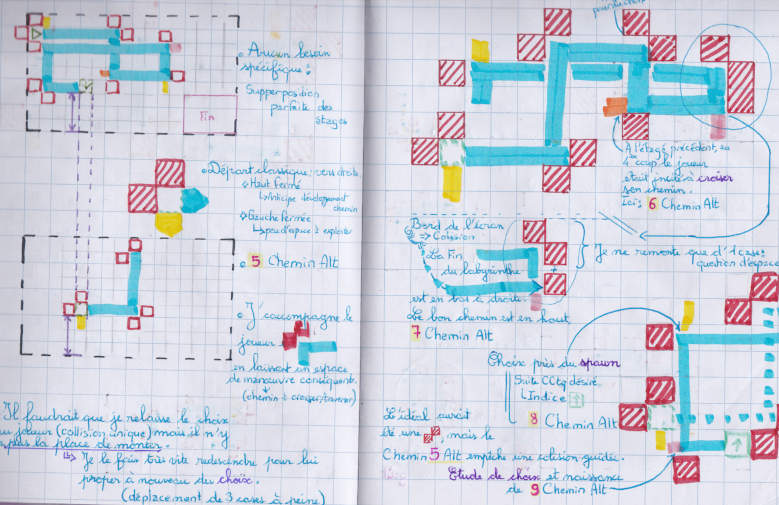 Aucun besoin
spécifique :
Supperposition
parfaite des
stages
Fin
Départ classique : vers droite
Haut Fermé
Anticipe développement
chemin
Gauche Fermée
peu d'espace à exploiter
5 Chemin Alt
J'accompagne le
joueur
en laissant un espace
de manœuvre conséquente.
(chemin à croiser/traverser)
Il faudrait que je relaisse le choix
au joueur (collision unique) mais il n'y
a pas la place de monter.
Je le fais très vite redescendre pour lui
proposer à nouveau du choix.
(déplacement de 3 cases à peine)
A l'étage précédent, au
4e coup le joueur
était incité à croiser
son chemin.
Ici : 6 Chemin Alt
Bord de l'écran
=> Collision
La Fin
du labyrinthe
est en bas à droite.
Le bon chemin est en haut
7 Chemin Alt
Je ne remonte que d'1 case :
question d'espace
Choix près du spawn
Suite
désiré
Indice
8 Chemin Alt
L'idéal aurait
été une
, mais le
Chemin 5 Alt empêche une collision guidée.
Etude de choix et naissance
de 9 Chemin Alt